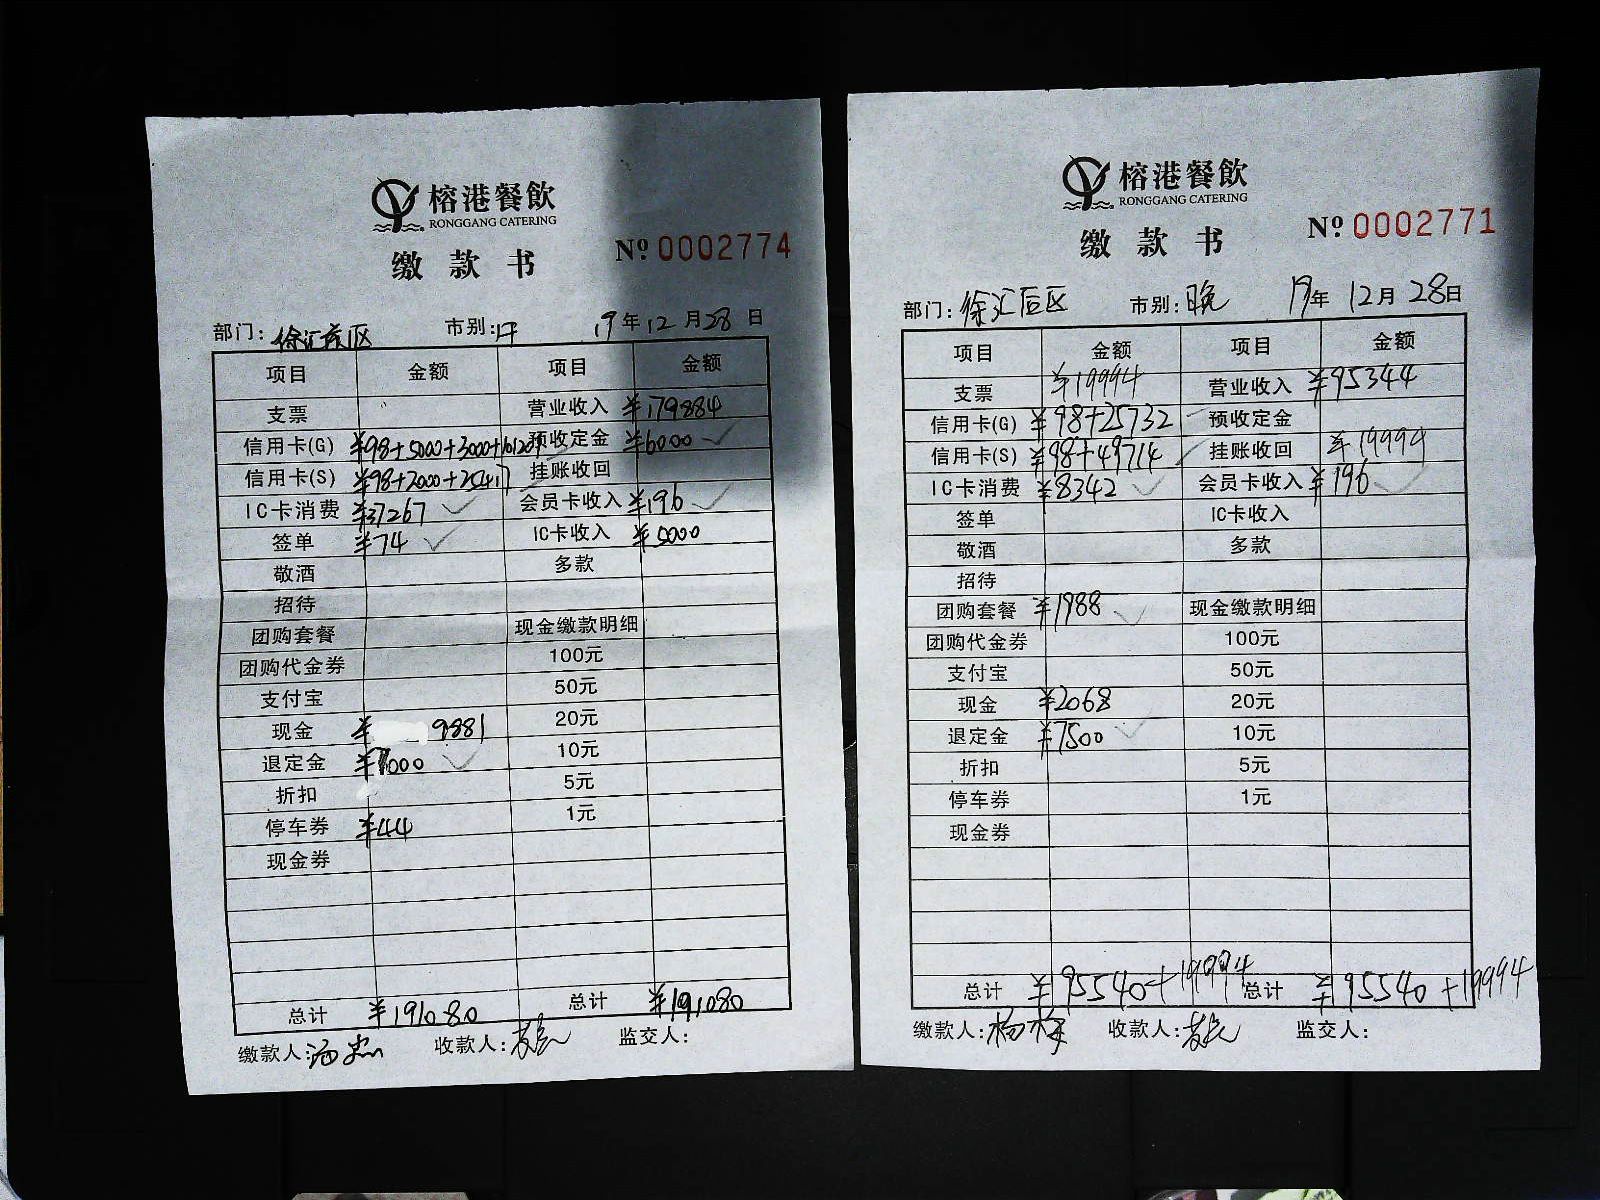 榕港餐飲
RONGGANG CATERING
缴款书
№ 0002774
部门: 徐汇 区 市别: 19年12月28日
项目 金额 项目 金额
支票 营业收入 ¥179884
信用卡(G) ¥98+5000+3000+101209 预收定金 ¥6000
信用卡(S) ¥98+2000+25417 挂账收回
IC卡消费 ¥37267 会员卡收入 ¥196
签单 ¥74 IC卡收入 ¥5000
敬酒 多款
招待
团购套餐 现金缴款明细
团购代金券 100元
支付宝 50元
现金 ¥ 9881 20元
退定金 ¥7000 10元
折扣 5元
停车券 ¥44 1元
现金券
总计 ¥191080 总计 ¥191080
缴款人: 收款人: 监交人:
榕港餐飲
RONGGANG CATERING
缴款书
№ 0002771
部门: 徐汇后区 市别: 晚 19年12月28日
项目 金额 项目 金额
支票 ¥19994 营业收入 ¥95344
信用卡(G) ¥98+25732 预收定金
信用卡(S) ¥98+49714 挂账收回 ¥19994
IC卡消费 ¥8342 会员卡收入 ¥196
签单 IC卡收入
敬酒 多款
招待
团购套餐 ¥1988 现金缴款明细
团购代金券 100元
支付宝 50元
现金 ¥2068 20元
退定金 ¥7500 10元
折扣 5元
停车券 1元
现金券
总计 ¥95540+19994 总计 ¥95540+19994
缴款人: 杨梅 收款人: 监交人: